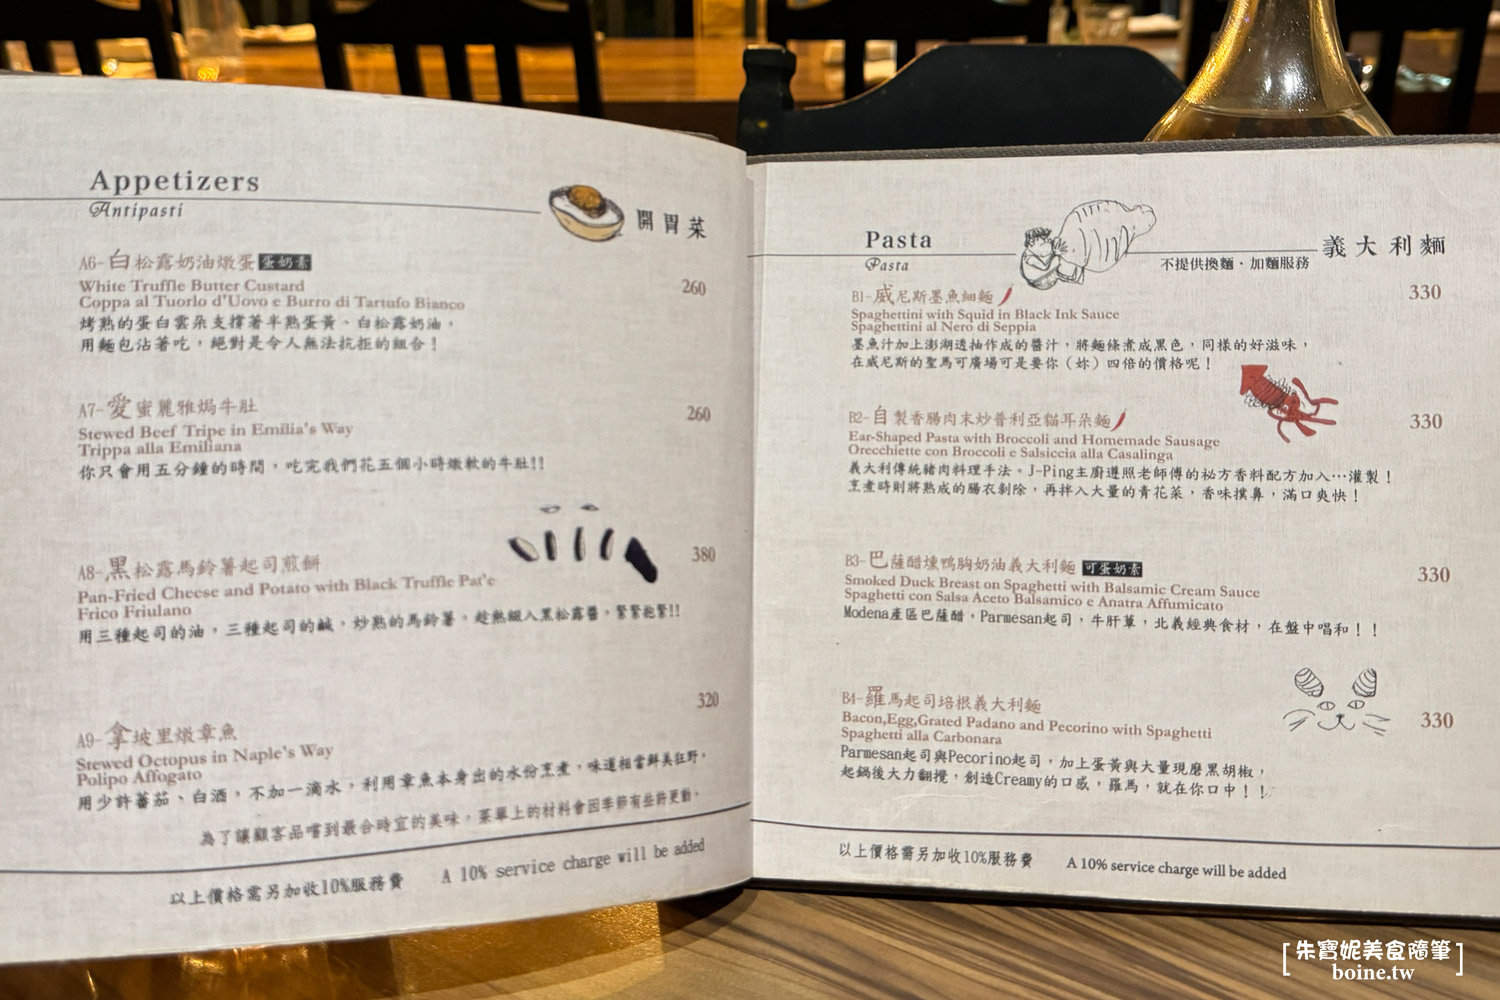 Appetizers
Antipasti
開胃菜
A6-白松露奶油燉蛋 蛋奶素
White Truffle Butter Custard
260
Coppa al Tuorlo d'Uovo e Burro di Tartufo Bianco
烤熟的蛋白雲朵支撐著半熟蛋黃、白松露奶油，
用麵包沾著吃，絕對是令人無法抗拒的組合！
A7-愛蜜麗雅焗牛肚
260
Stewed Beef Tripe in Emilia's Way
Trippa alla Emiliana
你只會用五分鐘的時間，吃完我們花五個小時燉軟的牛肚!!
A8-黑松露馬鈴薯起司煎餅
380
Pan-Fried Cheese and Potato with Black Truffle Pat'e
Frico Friulano
用三種起司的油，三種起司的鹹，炒熟的馬鈴薯，趁熱綴入黑松露醬，緊緊抱緊!!
320
A9-拿坡里燉章魚
Stewed Octopus in Naple's Way
Polipo Affogato
用少許蕃茄、白酒，不加一滴水，利用章魚本身出的水份烹煮，味道相當鮮美狂野。
為了讓顧客品嚐到最合時宜的美味，菜單上的材料會因季節有些許更動。
以上價格需另加收10%服務費 A 10% service charge will be added
Pasta
Pasta
不提供換麵．加麵服務
義大利麵
B1-威尼斯墨魚細麵
330
Spaghettini with Squid in Black Ink Sauce
Spaghettini al Nero di Seppia
墨魚汁加上澎湖透抽作成的醬汁，將麵條煮成黑色，同樣的好滋味，
在威尼斯的聖馬可廣場可是要你（妳）四倍的價格呢！
B2-自製香腸肉末炒普利亞貓耳朵麵
330
Ear-Shaped Pasta with Broccoli and Homemade Sausage
Orecchiette con Broccoli e Salsiccia alla Casalinga
義大利傳統豬肉料理手法。J-Ping主廚遵照老師傅的祕方香料配方加入…灌製！
烹煮時則將熟成的腸衣剝除，再拌入大量的青花菜，香味撲鼻，滿口爽快！
B3-巴薩醋燻鴨胸奶油義大利麵 可蛋奶素
330
Smoked Duck Breast on Spaghetti with Balsamic Cream Sauce
Spaghetti con Salsa Aceto Balsamico e Anatra Affumicato
Modena產區巴薩醋，Parmesan起司，牛肝蕈，北義經典食材，在盤中唱和！！
B4-羅馬起司培根義大利麵
330
Bacon,Egg,Grated Padano and Pecorino with Spaghetti
Spaghetti alla Carbonara
Parmesan起司與Pecorino起司，加上蛋黃與大量現磨黑胡椒，
起鍋後大力翻攪，創造Creamy的口感，羅馬，就在你口中！！
以上價格需另加收10%服務費 A 10% service charge will be added
[朱寶妮美食隨筆]
boine.tw